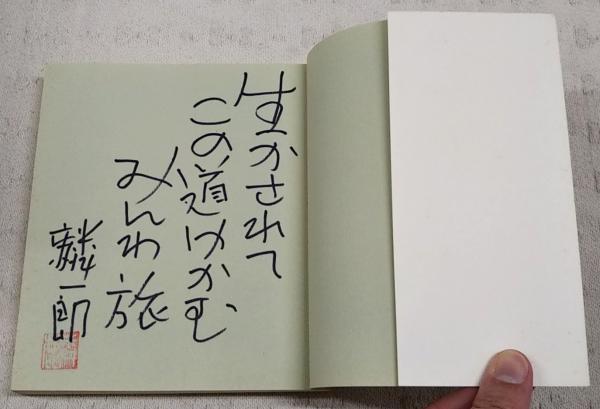 生かされて
この道ゆかむ
みんな旅
麟一郎